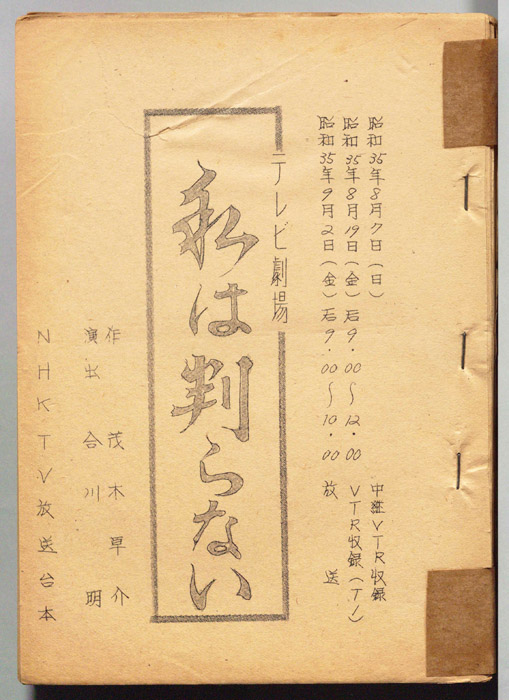 昭和35年8月7日(日) 中継VTR収録
昭和35年8月19日(金)后9.00〜12.00 VTR収録(T1)
昭和35年9月2日(金)后9.00〜10.00 放送
テレビ劇場
私は判らない
作 茂木草介
演出 合川明
NHKTV放送台本